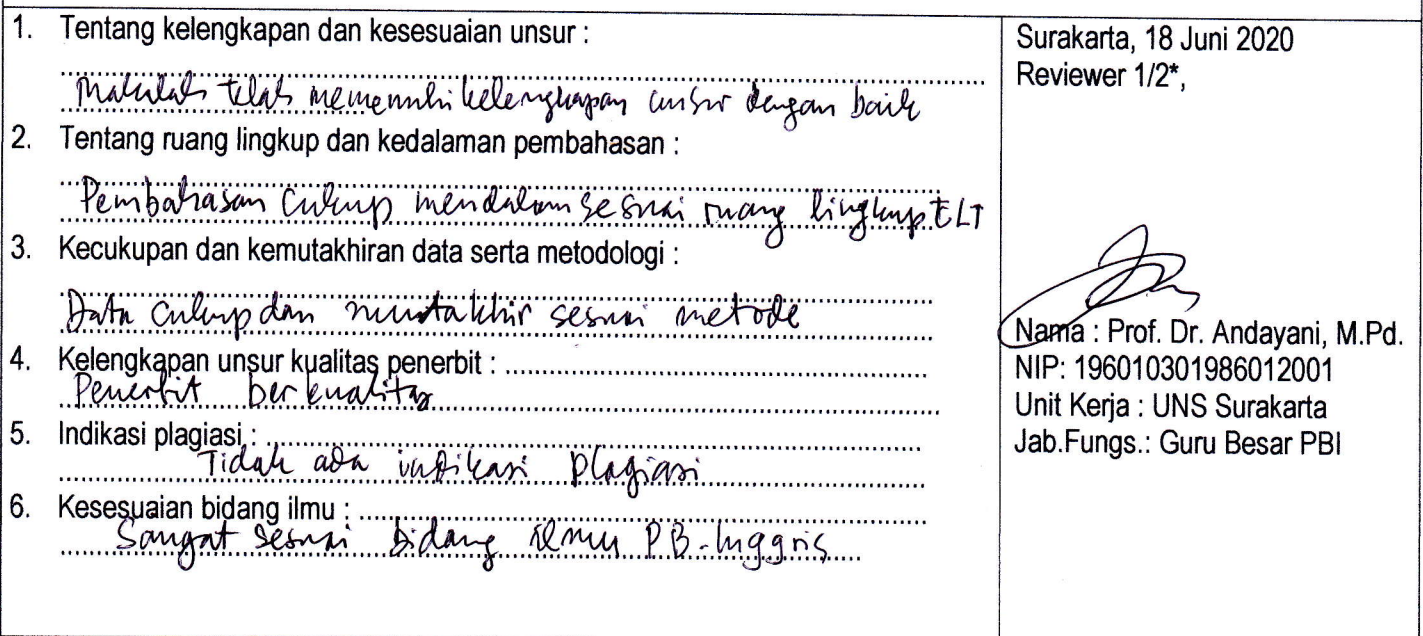 1. Tentang kelengkapan dan kesesuaian unsur :
Makalah telah memenuhi kelengkapan unsur dengan baik
2. Tentang ruang lingkup dan kedalaman pembahasan :
Pembahasan cukup mendalam sesuai ruang lingkup ELT
3. Kecukupan dan kemutakhiran data serta metodologi :
Data cukup dan mutakhir sesuai metode
4. Kelengkapan unsur kualitas penerbit :
Penerbit berkualitas
5. Indikasi plagiasi :
Tidak ada indikasi plagiasi
6. Kesesuaian bidang ilmu :
Sangat sesuai bidang ilmu P B-Inggris
Surakarta, 18 Juni 2020
Reviewer 1/2*,
Nama : Prof. Dr. Andayani, M.Pd.
NIP: 196010301986012001
Unit Kerja : UNS Surakarta
Jab.Fungs.: Guru Besar PBI